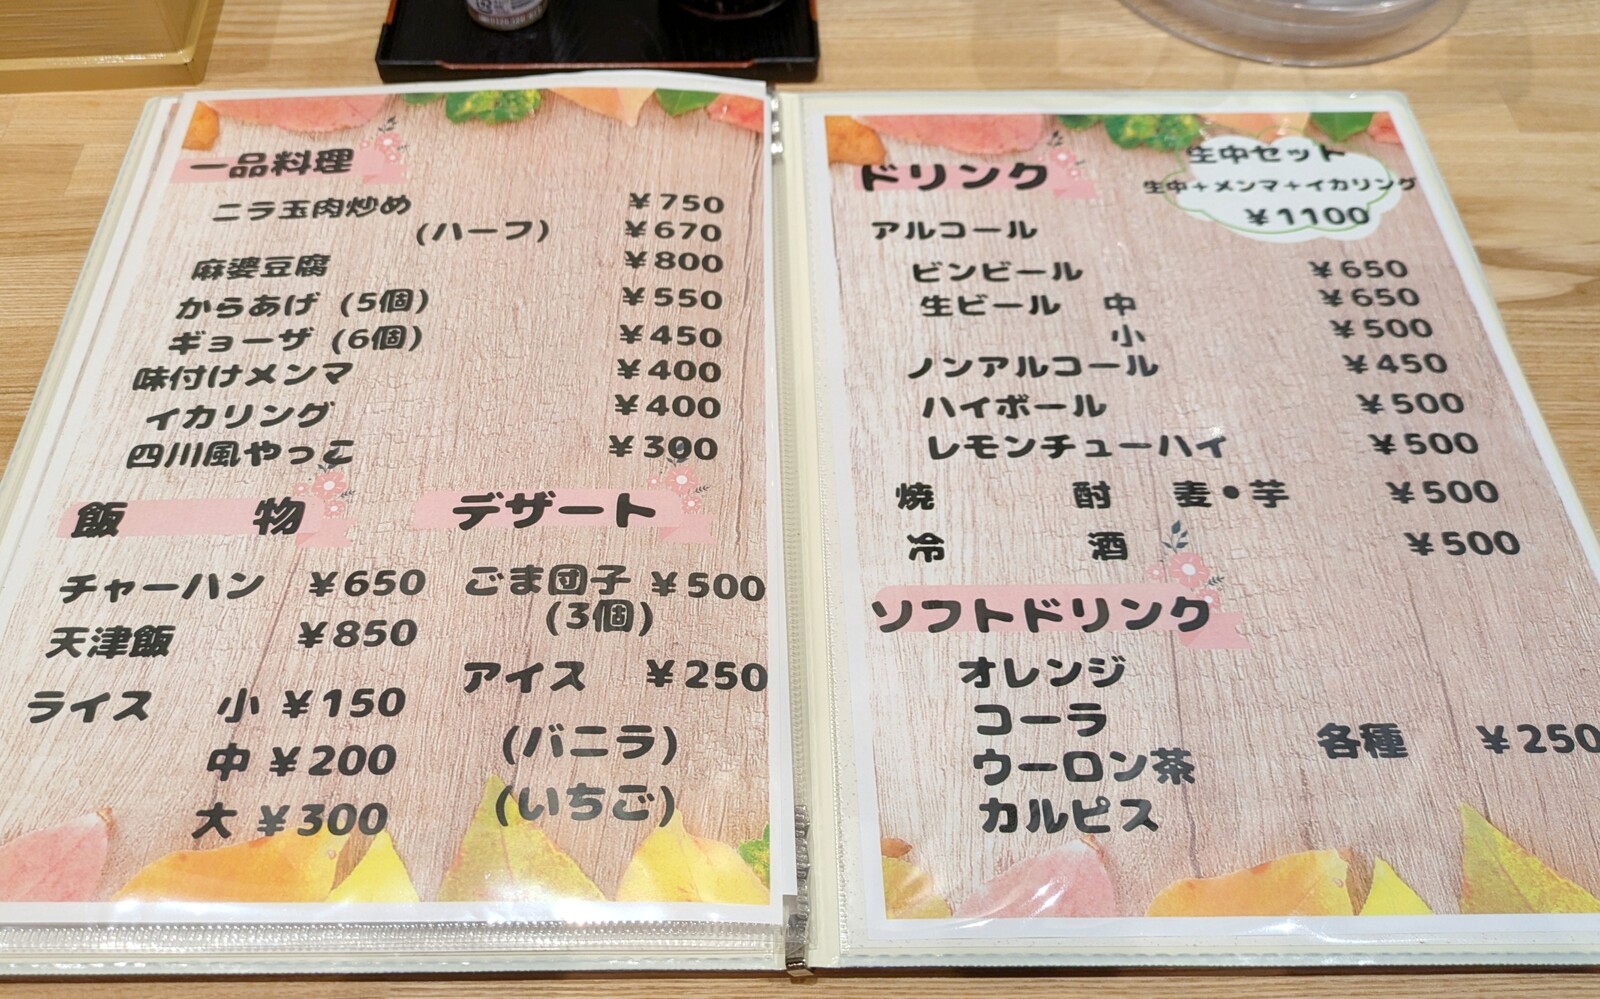 一品料理
ニラ玉肉炒め ￥750
(ハーフ) ￥670
麻婆豆腐 ￥800
からあげ (5個) ￥550
ギョーザ (6個) ￥450
味付けメンマ ￥400
イカリング ￥400
四川風やっこ ￥300
飯 物
チャーハン ￥650
天津飯 ￥850
ライス 小 ￥150
中 ￥200
大 ￥300
デザート
ごま団子 ￥500
(3個)
アイス ￥250
(バニラ)
(いちご)
ドリンク
生中セット
生中+メンマ+イカリング
￥1100
アルコール
ビンビール ￥650
生ビール 中 ￥650
小 ￥500
ノンアルコール ￥450
ハイボール ￥500
レモンチューハイ ￥500
焼 酎 麦・芋 ￥500
冷 酒 ￥500
ソフトドリンク
オレンジ
コーラ
ウーロン茶
カルピス
各種 ￥250